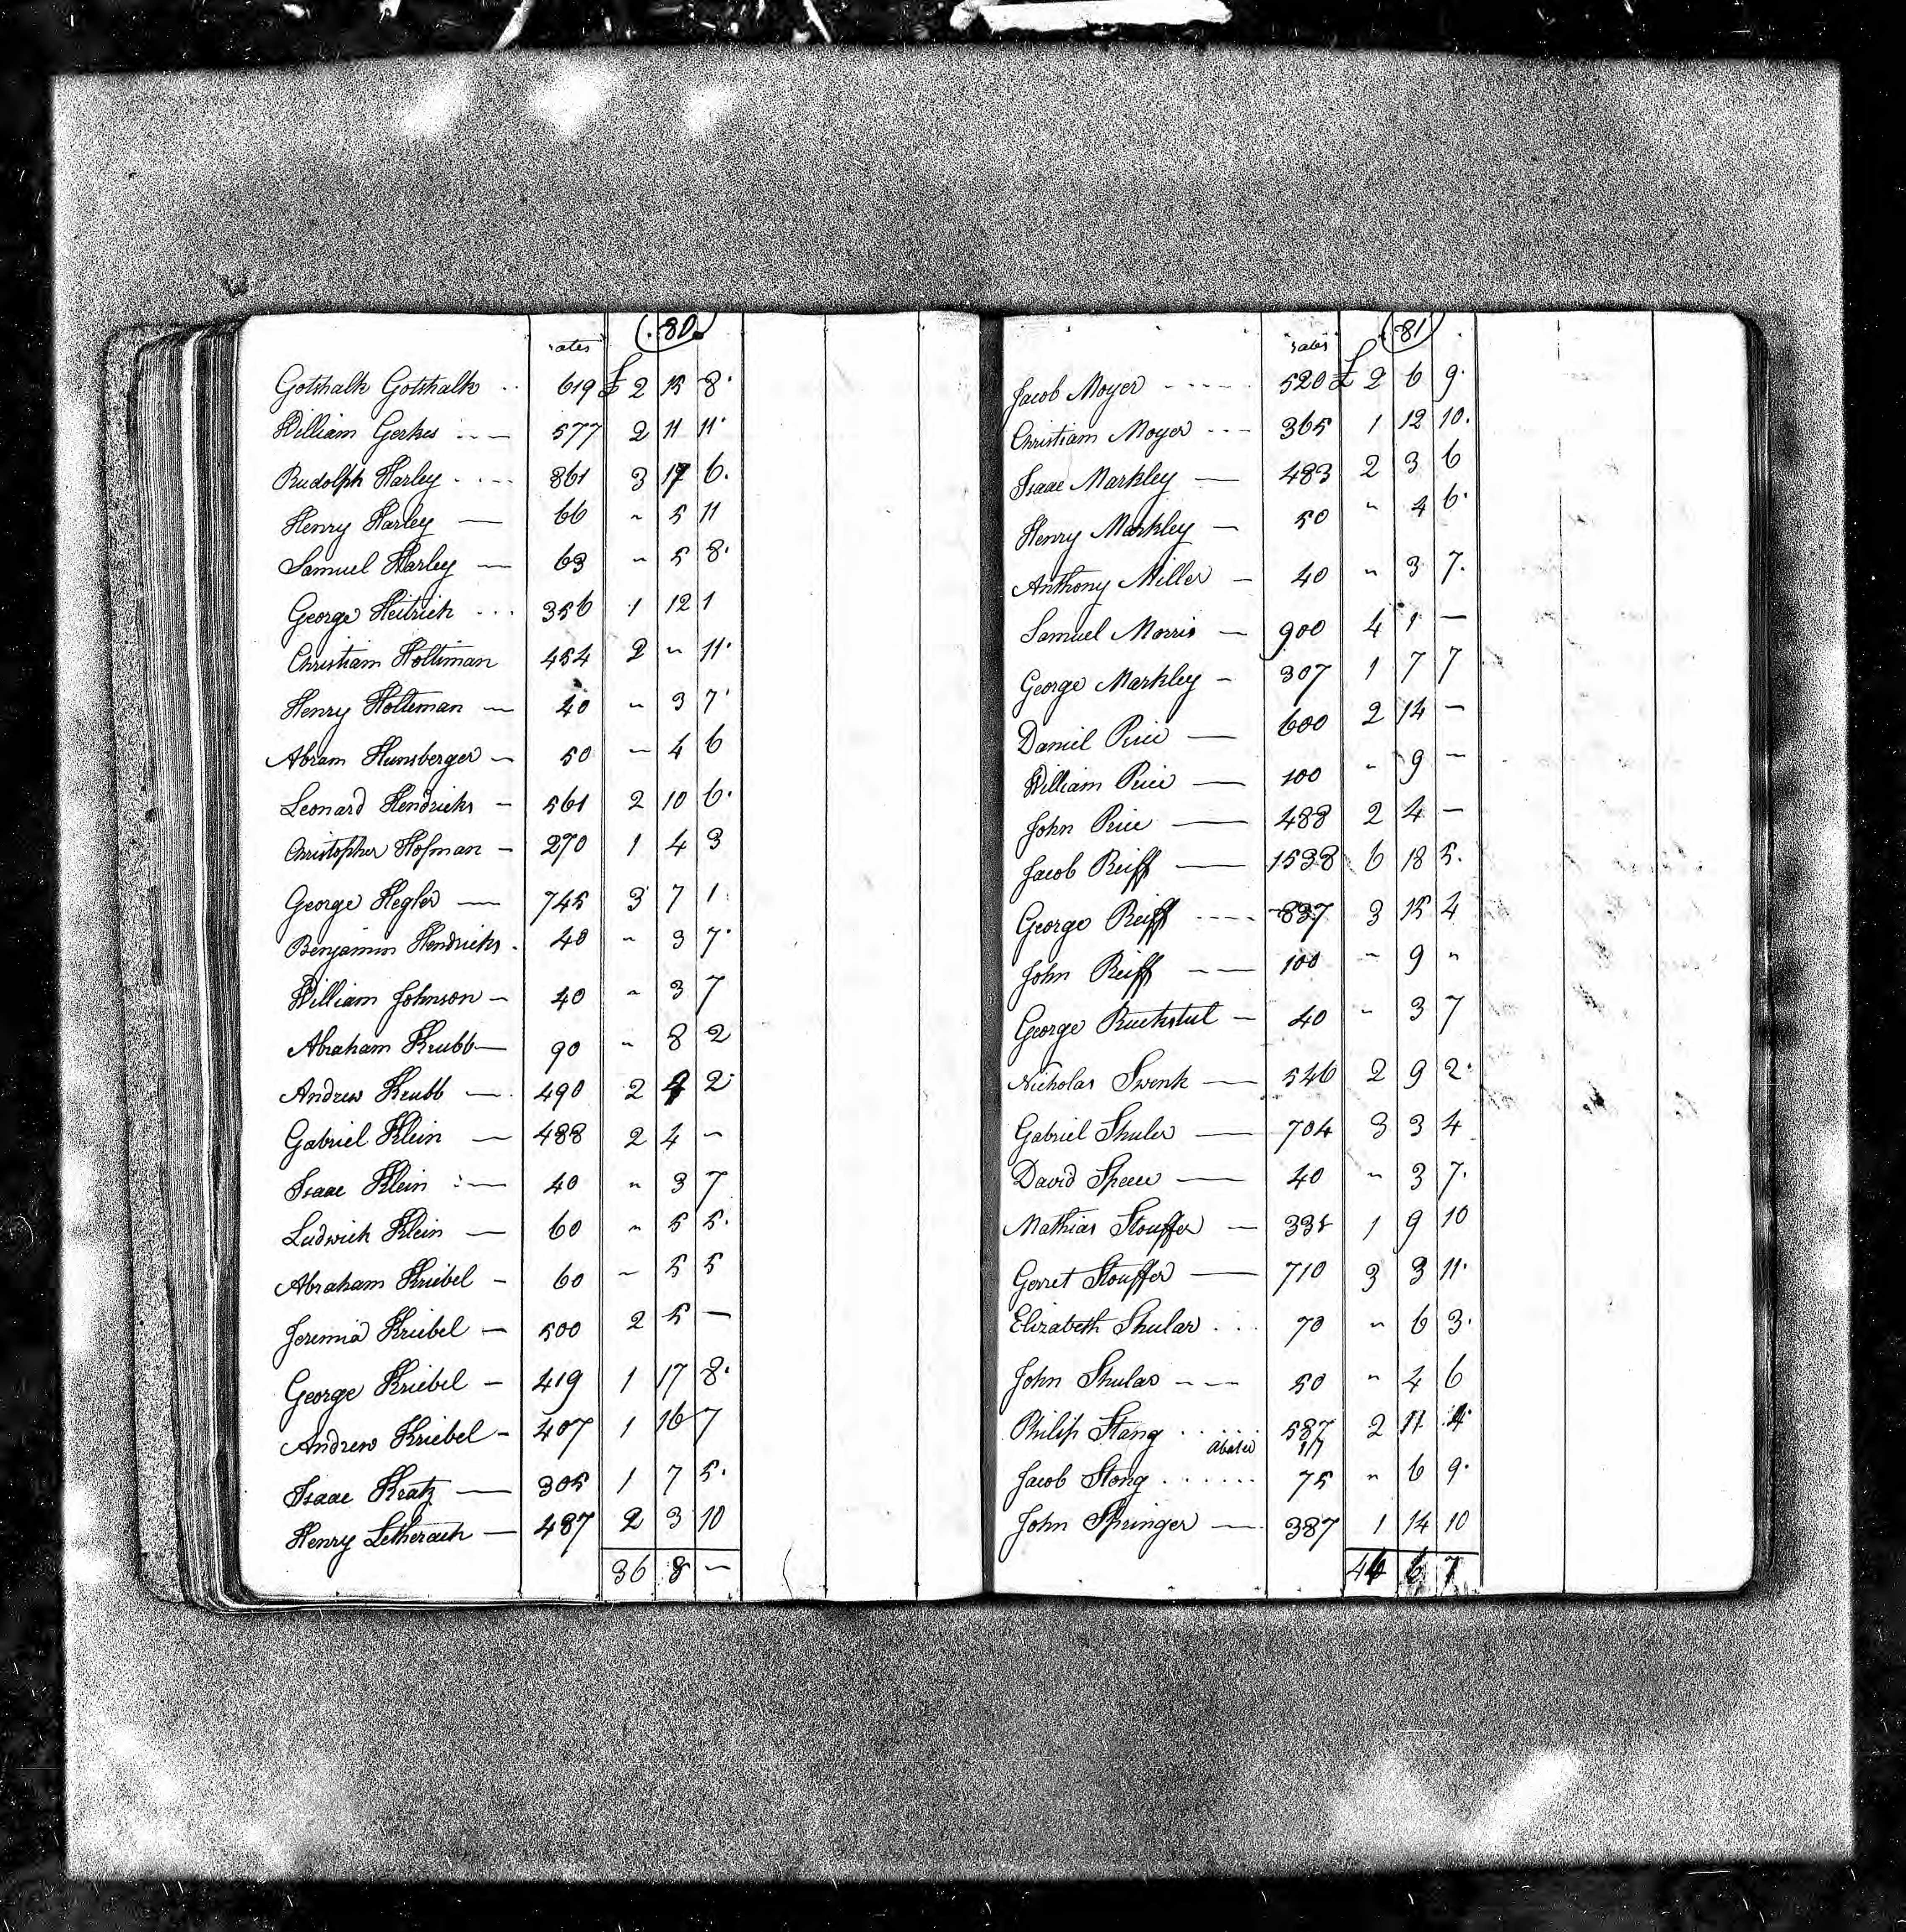 80
rates
Gotshalk Gotshalk .. 619 £ 2 15 8.
William Gerkes ... — 577 2 11 11.
Rudolph Harley .... 861 3 17 6.
Henry Harley — 66 " 5 11
Samuel Harley — 63 " 5 8.
George Heitrich ... 356 1 12 1
Christian Holtiman 454 2 " 11.
Henry Holteman — 40 " 3 7.
Abram Hunsberger — 50 — 4 6
Leonard Hendricks — 561 2 10 6.
Christopher Hofman — 270 1 4 3
George Hegler — 745 3 7 1
Benjamin Hendricks . 40 " 3 7.
William Johnson — 40 " 3 7
Abraham Krubb — 90 " 8 2
Andrew Krubb — 490 2 4 2
Gabriel Klein — 488 2 4 —
Isaac Klein — 40 " 3 7
Ludwick Klein — 60 " 5 5.
Abraham Kriebel — 60 — 5 5
Jeremia Kriebel — 500 2 5 —
George Kriebel — 419 1 17 8.
Andrew Kriebel — 407 1 16 7
Isaac Kratz — 305 1 7 5.
Henry Letherach — 487 2 3 10
36 8 —
81
rates
Jacob Moyer ---- 520 £ 2 6 9.
Christian Moyer --- 365 1 12 10.
Isaac Markley — 483 2 3 6
Henry Markley — 50 " 4 6.
Anthony Miller — 40 " 3 7.
Samuel Morris — 900 4 1 —
George Markley — 307 1 7 7
Daniel Price — 600 2 14 —
William Price — 100 " 9 —
John Price — 488 2 4 —
Jacob Reiff — 1538 6 18 5.
George Reiff ---- 837 3 15 4
John Reiff — 100 — 9 "
George Ruckstul — 40 " 3 7
Nicholas Swenk — 546 2 9 2.
Gabriel Shuler — 704 3 3 4
David Specee — 40 " 3 7.
Mathias Stouffer — 331 1 9 10
Gerret Stouffer — 710 3 3 11.
Elizabeth Shular ... 70 " 6 3.
John Shular --- 50 " 4 6
Philip Stang ..... 587 2 11 4
abated 1/7
Jacob Stong ...... 75 " 6 9.
John Springer — 387 1 14 10
44 6 7